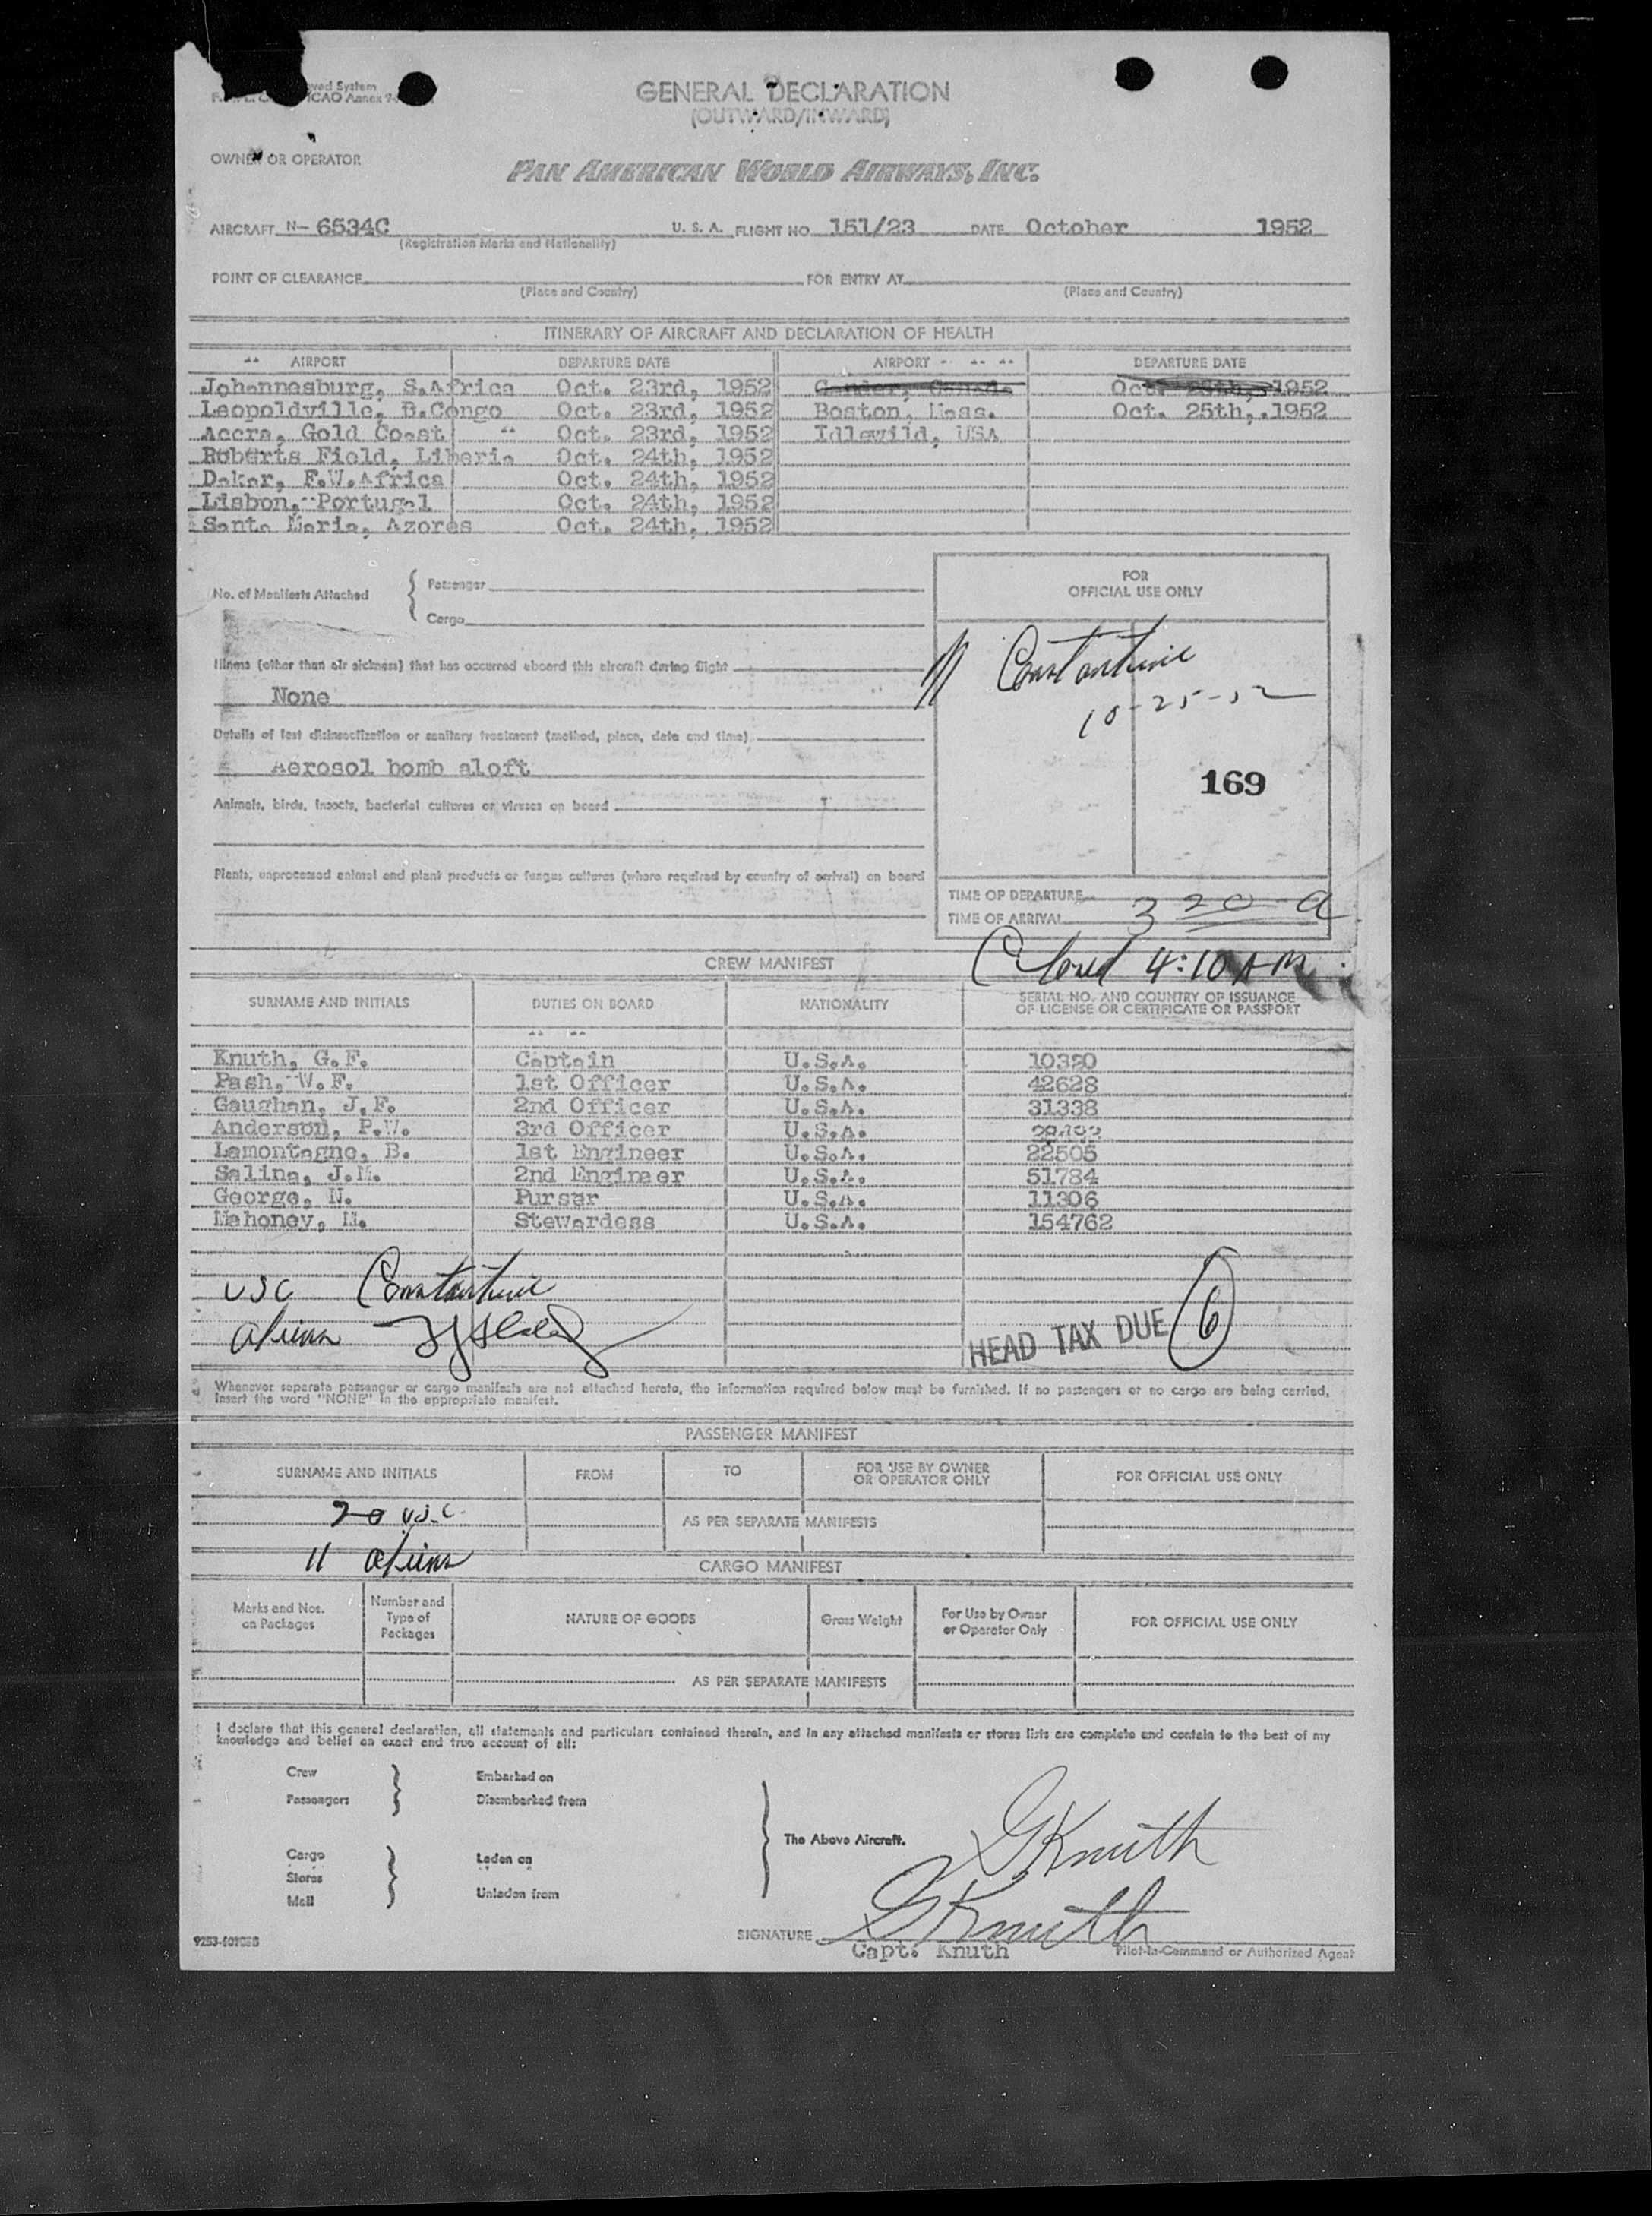 oved System
ICAO Annex 9
GENERAL DECLARATION
(OUTWARD/INWARD)
OWNER OR OPERATOR
PAN AMERICAN WORLD AIRWAYS, INC.
AIRCRAFT N- 6534C U. S. A. FLIGHT NO. 151/23 DATE October 1952
(Registration Marks and Nationality)
POINT OF CLEARANCE FOR ENTRY AT
(Place and Country) (Place and Country)
ITINERARY OF AIRCRAFT AND DECLARATION OF HEALTH
AIRPORT DEPARTURE DATE AIRPORT DEPARTURE DATE
Johannesburg, S.Africa Oct. 23rd, 1952 Gander, Canada Oct. 25th, 1952
Leopoldville, B.Congo Oct. 23rd, 1952 Boston, Mass. Oct. 25th, 1952
Accra, Gold Coast Oct. 23rd, 1952 Idlewild, USA
Roberts Field, Liberia Oct. 24th, 1952
Dakar, F.W.Africa Oct. 24th, 1952
Lisbon, Portugal Oct. 24th, 1952
Santa Maria, Azores Oct. 24th, 1952
FOR
OFFICIAL USE ONLY
No. of Manifests Attached { Passenger
Cargo
Constantine
10-25-52
169
Illness (other than air sickness) that has occurred aboard this aircraft during flight
None
Details of last disinsectization or sanitary treatment (method, place, date and time)
Aerosol bomb aloft
Animals, birds, insects, bacterial cultures or viruses on board
Plants, unprocessed animal and plant products or fungus cultures (where required by country of arrival) on board
TIME OF DEPARTURE
TIME OF ARRIVAL 3 20 a
Closed 4:10 AM
CREW MANIFEST
SURNAME AND INITIALS DUTIES ON BOARD NATIONALITY SERIAL NO. AND COUNTRY OF ISSUANCE
OF LICENSE OR CERTIFICATE OR PASSPORT
Knuth, G.F. Captain U.S.A. 10320
Pash, W.F. 1st Officer U.S.A. 42628
Gaughan, J.F. 2nd Officer U.S.A. 31338
Anderson, P.W. 3rd Officer U.S.A.
Lamontagne, B. 1st Engineer U.S.A. 22505
Salina, J.M. 2nd Engineer U.S.A. 51784
George, N. Purser U.S.A. 11306
Mahoney, M. Stewardess U.S.A. 154762
USC Constantine
aliens
HEAD TAX DUE 6
Whenever separate passenger or cargo manifests are not attached hereto, the information required below must be furnished. If no passengers or no cargo are being carried,
insert the word "NONE" in the appropriate manifest.
PASSENGER MANIFEST
SURNAME AND INITIALS FROM TO FOR USE BY OWNER
OR OPERATOR ONLY FOR OFFICIAL USE ONLY
20 USC
AS PER SEPARATE MANIFESTS
11 aliens
CARGO MANIFEST
Marks and Nos.
on Packages Number and
Type of
Packages NATURE OF GOODS Gross Weight For Use by Owner
or Operator Only FOR OFFICIAL USE ONLY
AS PER SEPARATE MANIFESTS
I declare that this general declaration, all statements and particulars contained therein, and in any attached manifests or stores lists are complete and contain to the best of my
knowledge and belief an exact and true account of all:
Crew
Passengers } Embarked on
Disembarked from
The Above Aircraft.
GKnuth
Cargo
Stores
Mail } Laden on
Unladen from
SIGNATURE GKnuth
Capt. Knuth Pilot-in-Command or Authorized Agent